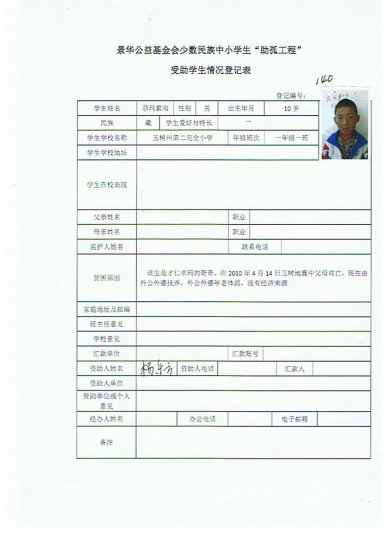 景华公益基金会少数民族中小学生“助孤工程”
受助学生情况登记表
140
登记编号：
学生姓名 尕玛索南 性别 男 出生年月 10 岁
民族 藏 学生爱好与特长
学生学校名称 玉树州第二完全小学 年级班次 一年级一班
学生学校地址
学生在校表现
父亲姓名 职业
母亲姓名 职业
监护人姓名 联系电话
贫困原因
该生是才仁卓玛的哥哥。在 2010 年 4 月 14 日玉树地震中父母双亡，现在由
外公外婆抚养，外公外婆年老体弱，没有经济来源
家庭地址及邮编
班主任意见
学校意见
汇款单位 汇款账号
资助人姓名 杨东方 资助人电话 汇款人
资助人单位
资助单位或个人
意见
经办人姓名 办公电话 电子邮箱
备注